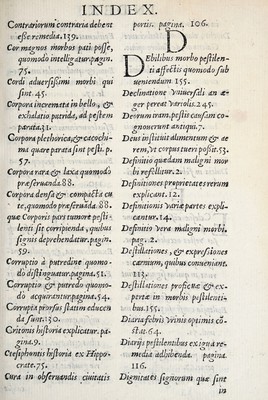 INDEX.
Contrariorum contraria debent
esse remedia. 139.
Cor magnos morbos pati posse,
quomodo intelligatur. pagin.
75.
Cordi aduersissimi morbi qui
sint. 45.
Corpora incremata in bello, &
exhalatio putrida, ad pestem
parata. 31.
Corpora plethorica, & cacochi-
ma quare parata sint pesti. p.
57.
Corpora rara & laxa quomodo
præseruanda. 88.
Corpora densa & compacta cu
te, quomodo præseruanda. 88.
que Corporis pars tumore pesti-
lenti sit corripienda, quibus
signis deprehendatur. pagin.
59.
Corruptio à putredine quomo-
do distinguatur. pagina. 51.
Corruptio & putredo quomo-
do acquirantur. pagina. 54.
Corrupta prorsus statim educen
da sunt. 130.
Critonis historia explicatur. pa-
gina. 9.
Ctesiphontis historia ex Hippo-
crate. 75.
Cura in obseruandis ciuitatis
portis. pagina. 106.
D
DEbilibus morbo pestilen-
ti affectis quomodo sub
ueniendum 155.
Declinatione vniuersali an æ-
ger pereat variolis. 245.
Deorum iram, pestis causam co-
gnouerunt antiqui. 7.
Deus instituit alimentum & ae
rem, vt corpus tueri possit. 53.
Definitio quædam maligni mor
bi refellitur. 2.
Definitiones proprietates rerum
explicant. 12.
Definitionis variæ partes expli-
cantur. 14.
Definitio vera maligni morbi.
pag. 2.
Destillationes, & expressiones
carnium, quibus conueniant.
113.
Destillationes profectæ & ex-
pertæ in morbis pestilenti-
bus. 155.
Diaria febris vrinis optimis cō
stat. 64.
Diarijs pestilentibus exigua re-
media adhibenda. pagina.
116.
Dignitates signorum quæ sint
in